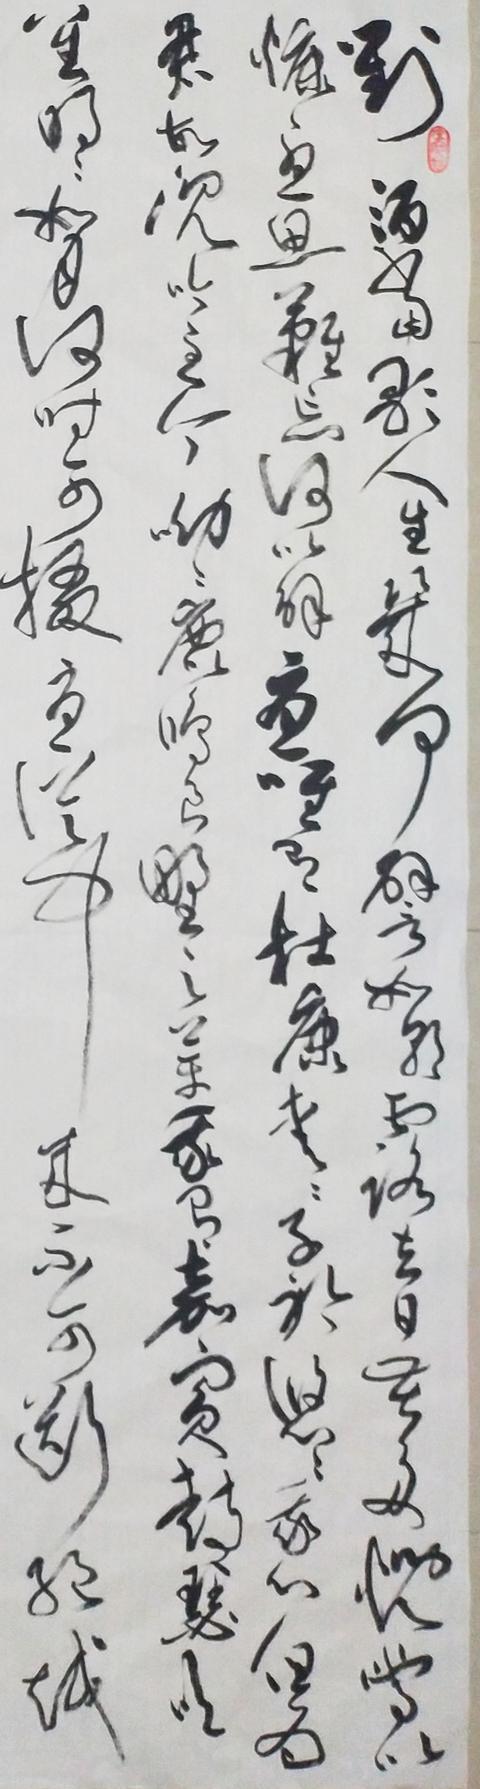 對酒當歌人生幾何譬如朝露去日苦多慨當以
慷憂思難忘何以解憂唯有杜康青々子衿悠々我心但為
君故沈吟至今呦々鹿鳴食野之苹我有嘉賓鼓瑟吹
笙明々如月何時可掇憂從中來不可斷絕越